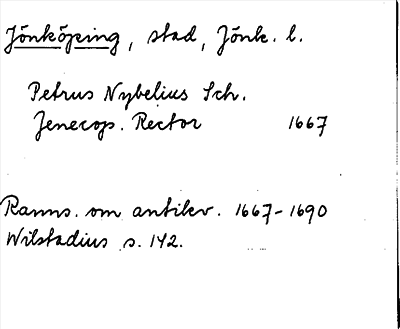 Jönköping, stad, Jönk. l.
Petrus Nybelius Sch.
Jenecop. Rector 1667
Ranns. om antikv. 1667-1690
Wilstadius s. 142.